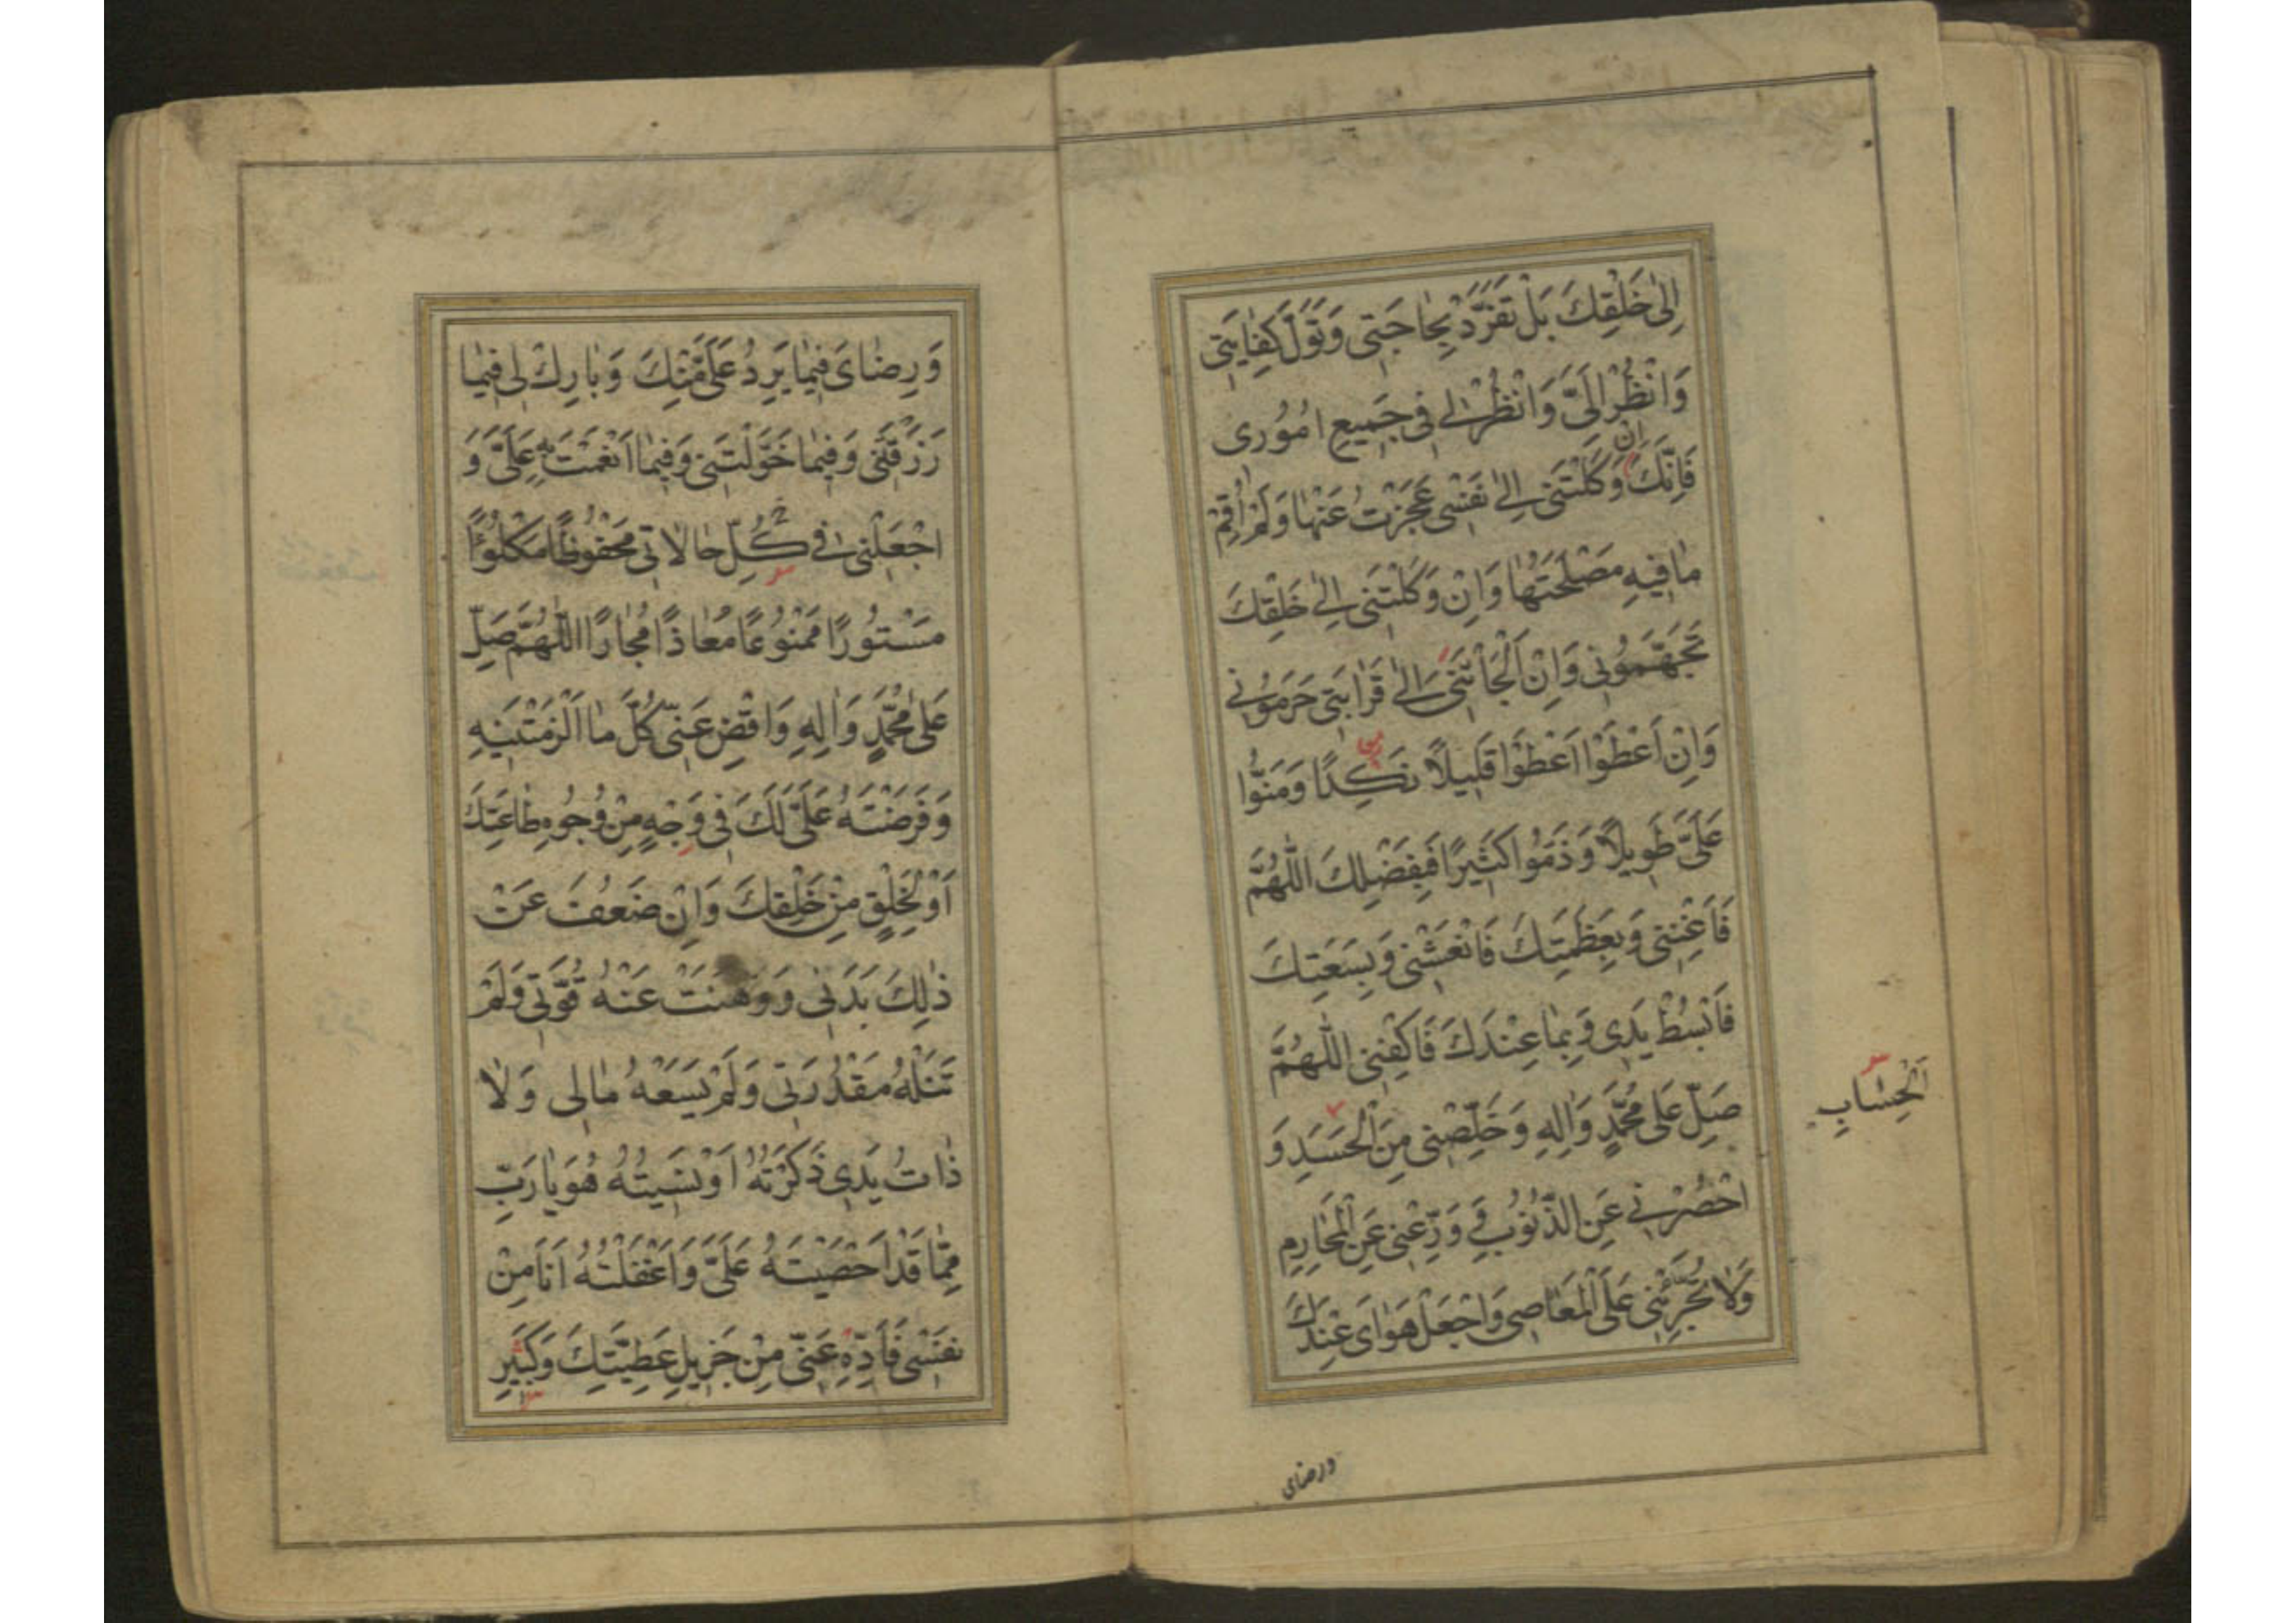 اِلىٰ خَلْقِكَ بَلْ تَفَرَّدْ بِحٰاجَتى وَتَوَلَّ كِفٰايَتى
وَانْظُرْ اِلَىَّ وَانْظُرْلى فى جَميعِ اُمُورى
فَاِنَّكَ اِنْ وَكَلْتَنى اِلىٰ نَفْسى عَجَزْتُ عَنْهٰا وَلَمْ اُقِمْ
مٰا فيهِ مَصْلَحَتُهٰا وَاِنْ وَكَلْتَنى اِلىٰ خَلْقِكَ
تَجَهَّمُونى وَاِنْ اَلْجَأْتَنى اِلىٰ قَرٰابَتى حَرَمُونى
وَاِنْ اَعْطَوْا اَعْطَوْا قَليلاً نَكِدًا وَمَنُّوا
عَلَىَّ طَويلاً وَذَمُّوا كَثيرًا فَبِفَضْلِكَ اللّٰهُمَّ
فَاَغْنِنى وَبِعَظَمَتِكَ فَانْعَشْنى وَبِسَعَتِكَ
فَابْسُطْ يَدى وَبِمٰا عِنْدَكَ فَاكْفِنى اللّٰهُمَّ
صَلِّ عَلىٰ مُحَمَّدٍ وَاٰلِهِ وَخَلِّصْنى مِنَ الْحَسَدِ وَ
اَلْحِسٰابِ
احْصُرْنى عَنِ الذُّنُوبِ وَ وَرِّعْنى عَنِ الْمَحٰارِمِ
وَلاٰ تُجَرِّئْنى عَلَى الْمَعٰاصى وَاجْعَلْ هَوٰاىَ عِنْدَكَ
ورضاى
وَرِضٰاىَ فيمٰا يَرِدُ عَلَىَّ مِنْكَ وَبٰارِكْ لى فيمٰا
رَزَقْتَنى وَفيمٰا خَوَّلْتَنى وَفيمٰا اَنْعَمْتَ بِهِ عَلَىَّ وَ
اجْعَلْنى فى كُلِّ حٰالاٰتى مَحْفُوظًا مَكْلُوءًا
مَسْتُورًا مَمْنُوعًا مُعٰاذًا مُجٰارًا اللّٰهُمَّ صَلِّ
عَلىٰ مُحَمَّدٍ وَاٰلِهِ وَاقْضِ عَنّى كُلَّ مٰا اَلْزَمْتَنيهِ
وَفَرَضْتَهُ عَلَىَّ لَكَ فى وَجْهٍ مِنْ وُجُوهِ طٰاعَتِكَ
اَوْ لِخَلْقٍ مِنْ خَلْقِكَ وَاِنْ ضَعُفَ عَنْ
ذٰلِكَ بَدَنى وَوَهَنَتْ عَنْهُ قُوَّتى وَلَمْ
تَنَلْهُ مَقْدُرَتى وَلَمْ يَسَعْهُ مٰالى وَلاٰ
ذٰاتُ يَدى ذَكَرْتُهُ اَوْ نَسيتُهُ هُوَ يٰا رَبِّ
مِمّٰا قَدْ اَحْصَيْتَهُ عَلَىَّ وَاَغْفَلْتُهُ اَنَا مِنْ
نَفْسى فَاَدِّهِ عَنّى مِنْ جَزيلِ عَطِيَّتِكَ وَكَثيرِ